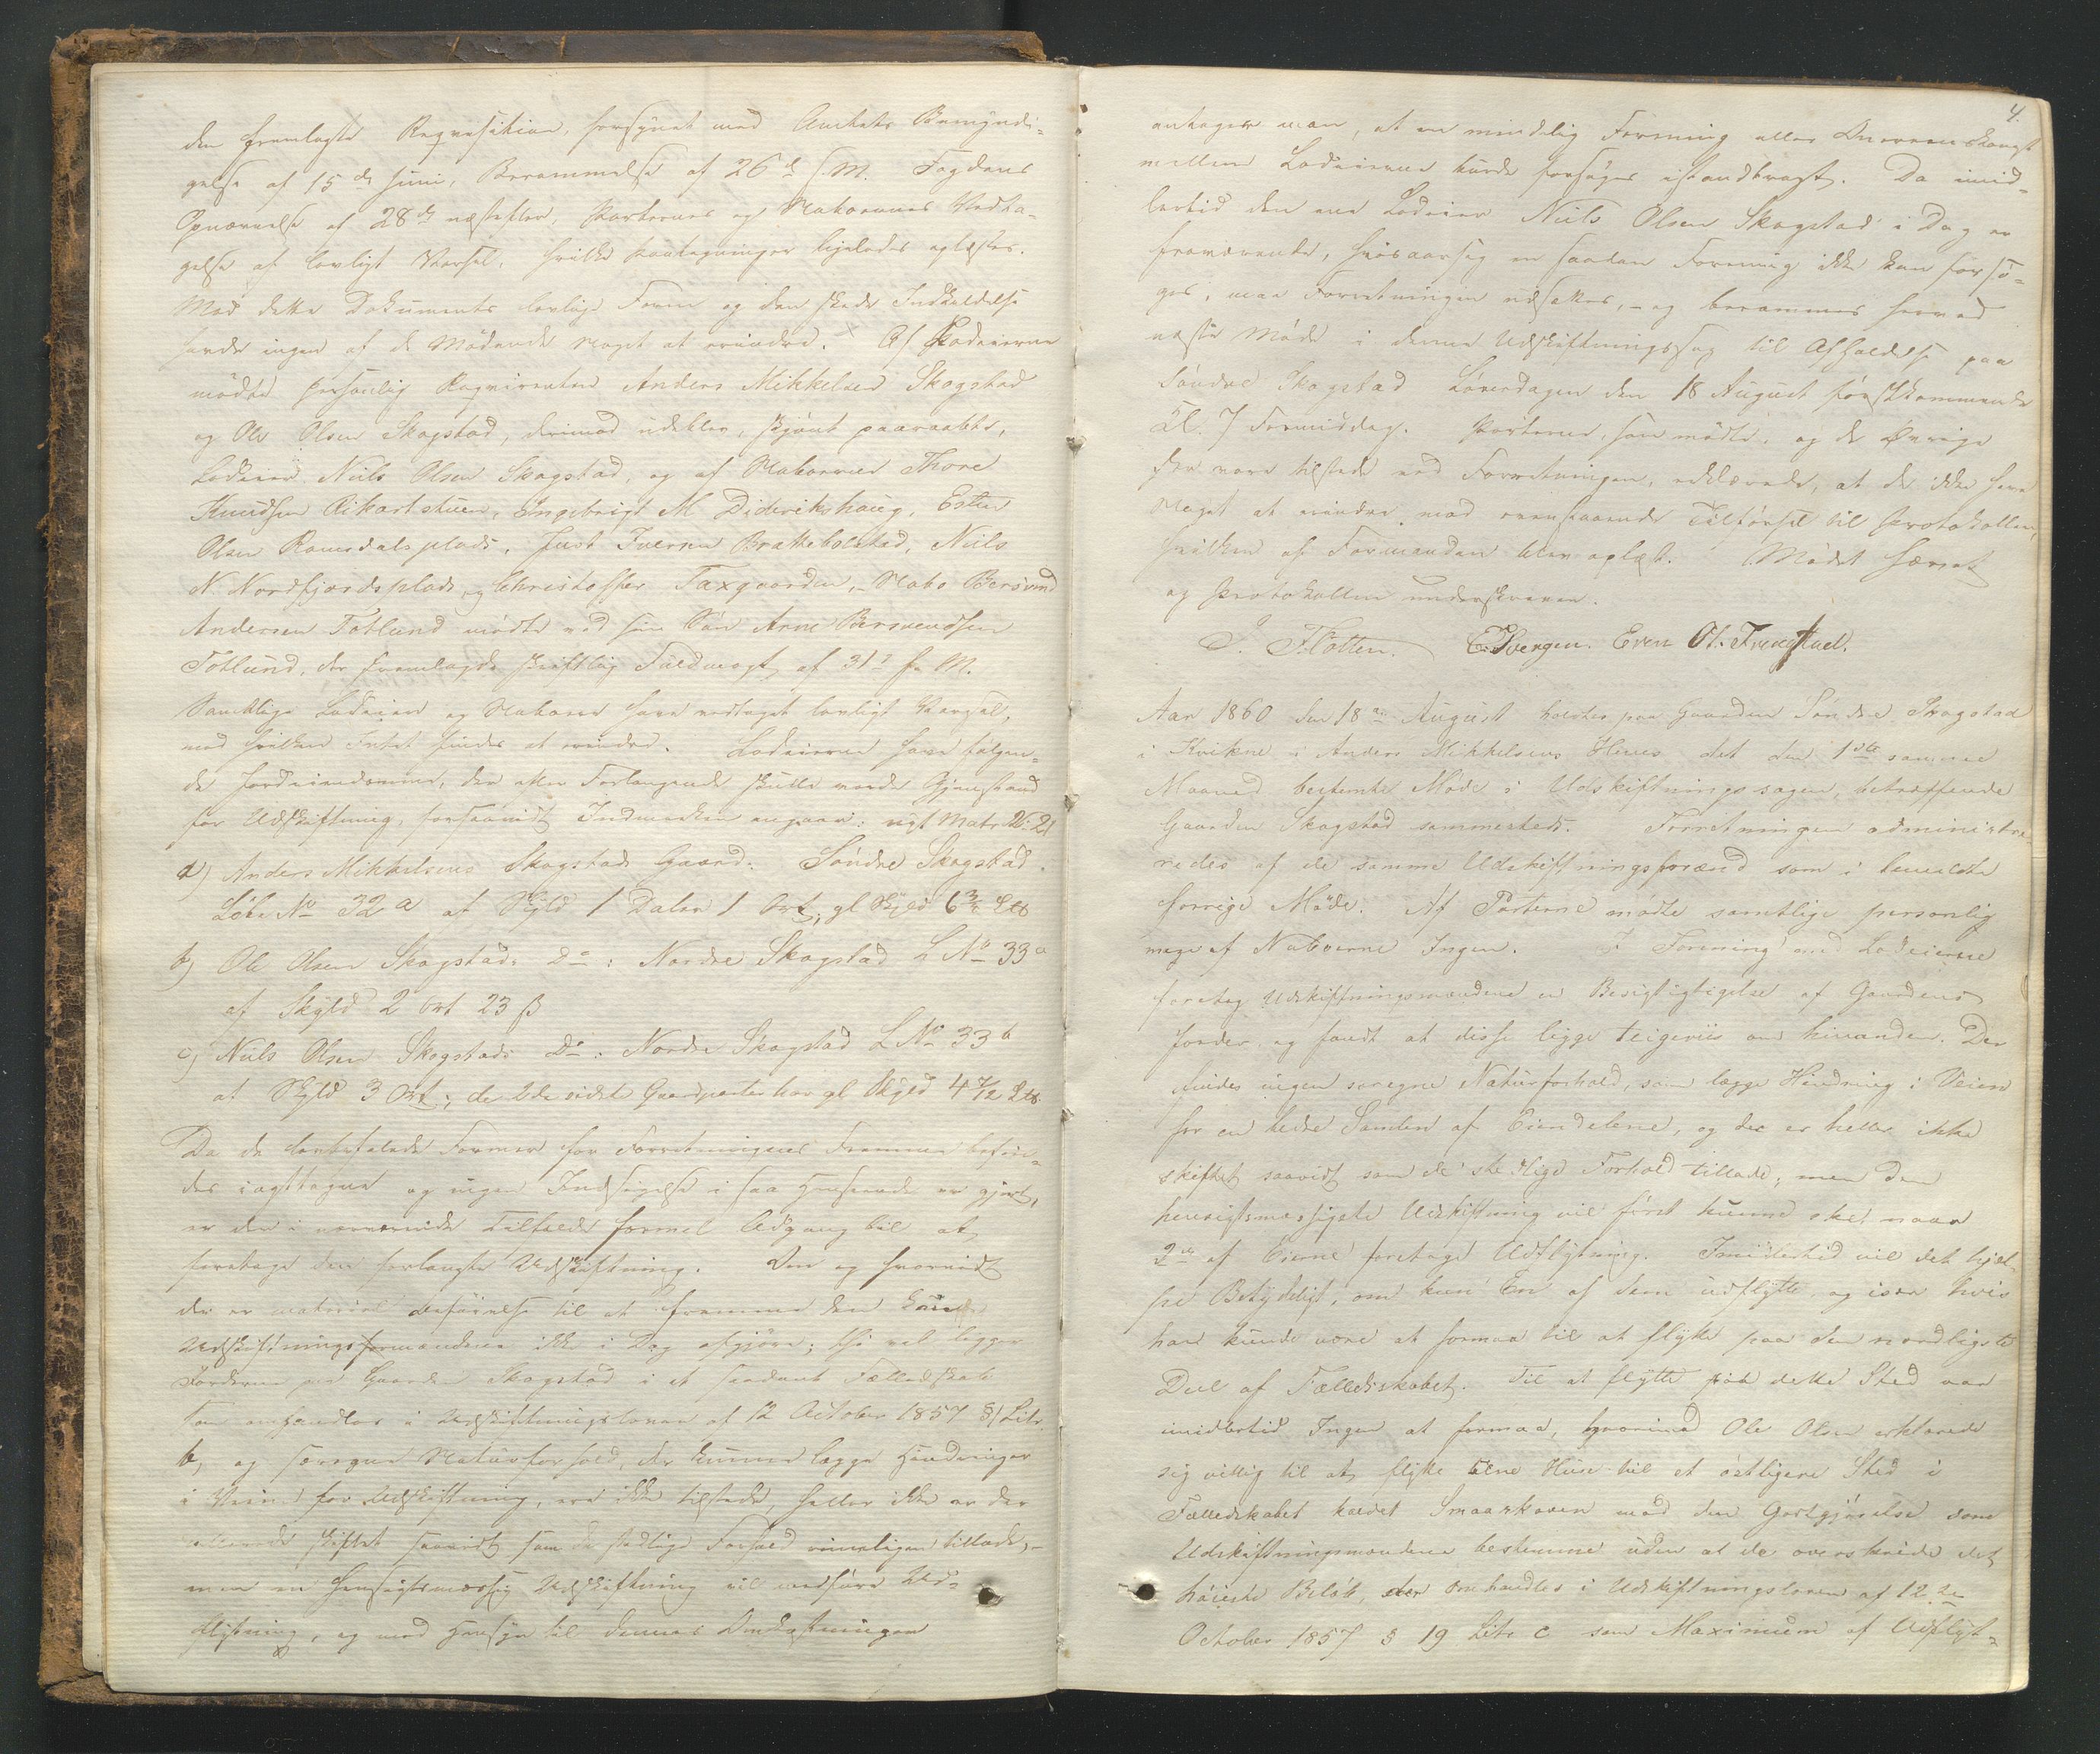 den fremlagte Reqvisition, forsynet med Amtets Bemyndi-
gelse af 15de Juni, Berammelse af 26de s. M. Fogdens
Opnævnelse af 28de næstefter, Parternes og Naboernes Vedta-
gelse af lovligt Varsel, hvilke Paategninger ligeledes oplæstes.
Mod dette Dokuments lovlige Form og den skede Indkaldelse
havde ingen af de Mødende Noget at erindre. Af Lodeierne
mødte personlig Reqvirenten Anders Mikkelsen Skogstad
og Ole Olsen Skogstad, derimod udeblev, skjønt paaraabt,
Lodeier Niils Olsen Skogstad, og af Naboerne Thore
Knudsen Rikartstuen, Ingebrigt M Diderikshaug, Esten
Olsen Ramsdalsplads, Just Iversen Brattebolstad, Niils
N. Nordfjordsplads og Christoffer Taxgaarden, - Nabo Bersvend
Andersen Totlund mødte ved sin Søn Arne Bersvendsen
Totlund, der fremlagde skriftlig Fuldmagt af 31te f. M.
Samtlige Lodeiere og Naboer have vedtaget lovligt Varsel,
mod hvilken Intet findes at erindre. Lodeierne have følgen-
de Jordeiendomme, der efter Forlangende skulle være Gjenstand
for Udskiftning, forsaavidt Indmarken angaar: nyt Matr. No. 21
a) Anders Mikkelsens Skogstads Gaard: Søndre Skogstad
Løbe No 32a af Skyld 1 Daler 1 Ort, gl Skyld 6¾ Lb
b) Ole Olsen Skogstads Do: Nordre Skogstad L No 33a
af Skyld 2 Ort 23 ß
c) Niils Olsen Skogstads Do: Nordre Skogstad L No 33b
af Skyld 3 Ort; de 2de sidste Gaardparter har gl Skyld 4½ Lb.
Da de lovbefalede Former for Forretningens Fremme befin-
des iagttagne og ingen Indsigelse i saa Henseende er gjort,
er der i nærværende Tilfælde formel Adgang til at
foretage den forlangte Udskiftning. Om og hvorvidt
der er materiel Beføielse til at fremme den kan
Udskiftningsformanden ikke i Dag afgjøre; thi vel ligger
Jorderne paa Gaarden Skogstad i et saadant Fælledskab
som omhandles i Udskiftningsloven af 12 October 1857 §1 Litr.
b, og særegne Naturforhold, der kunne lægge Hindringer
i Veien for Udskiftning, ere ikke tilstede, heller ikke er der
allerede skiftet saavidt som de stedlige Forhold rimeligen tillade, -
men en hensigtsmæssig Udskiftning vil medføre Ud-
flytning, og med Hensyn til dennes Omkostninger
4.
antager man, at en mindelig Forening eller Overenskomst
mellem Lodeierne burde forsøges istandbragt. Da imid-
lertid den ene Lodeier Niils Olsen Skogstad i Dag er
fraværende, hvisaarsag en saadan Forening ikke kan forsø-
ges, maa Forretningen udsættes, - og berammes herved
næste Møde i denne Udskiftningssag til Afholdelse paa
Søndre Skogstad Løverdagen den 18 August førstkommende
Kl. 7 Formiddag. Parterne, som mødte, og de Øvrige
der vare tilstede ved Forretningen, erklærede, at de ikke have
Noget at erindre mod ovenstaaende Tilførsel til Protokollen,
hvilken af Formanden blev oplæst. Mødet hævet
og Protokollen underskreven.
P. Flotten. E. Svergen. Even Ol. Frengstad.
Aar 1860 den 18de August holdtes paa Gaarden Søndre Skogstad
i Kvikne i Anders Mikkelsens Huus det den 1ste samme
Maaned bestemte Møde i Udskiftningssagen, betræffende
Gaarden Skogstad sammesteds. Forretningen administre-
redes af de samme Udskiftningsmænd som i bemeldte
forrige Møde. Af Parterne mødte samtlige personlig
men af Naboerne Ingen. I Forening med Lodeierne
foretog Udskiftningsmændene en Besigtigtigelse af Gaardens
Jorder og fandt at disse ligge teigeviis om hinanden. Der
findes ingen særegne Naturforhold, som lægge Hindring i Veien
for en bedre Samlen af Eiendelene, og der er heller ikke
skiftet saavidt som de stedlige Forhold tillade, men den
hensigtsmæssigste Udskiftning vil først kunne skee naar
2de af Eierne foretage Udflytning. Imidlertid vil det hjæl-
pe Betydeligt, om kun Een af dem udflytte, og især hvis
han kunde være at formaa til at flytte paa den nordligste
Deel af Fælledskabet. Til at flytte paa dette Sted var
imidlertid Ingen at formaa, hvorimod Ole Olsen erklærede
sig villig til at flytte sine Huse til et østligere Sted i
Fælledskabet kaldet Smaarkaven mod den Godtgjørelse som
Udskiftningsmændene bestemme uden at de overskride det
høieste Beløb, der omhandles i Udskiftningsloven af 12te
October 1857 § 19 Litr c som Maximum af Udflyt-